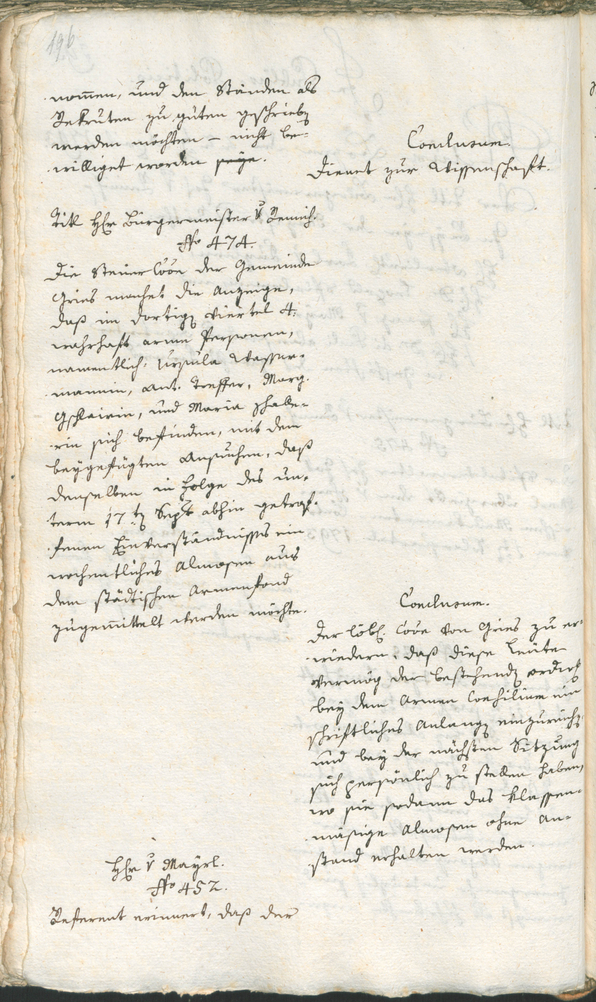 196
nom̄en, und den Ständen als
Rekruten zu guten geschrieben
werden möchten – nicht be-
williget worden seye.
Conclusum.
Dienet zur Wissenschaft.
Tit. Hr Bürgermeister v
No 474.
Die Steuer Cōōn der Gemeinde
Gries machet die Anzeige,
daß im dortigen Viertel 4
wahrhaft arme Personen,
namentlich: Ursula Wasser-
mannin, Ant. Treffer, Marg.
Gschlairin, und Maria Thale-
rin sich befinden, mit dem
beygefügten Ansuchen, daß
denselben in Folge des un-
term 17ten Septr abhin getrof-
fenen Einverständnißes ein
wochentliches Almosen aus
dem städtischen Armenfond
zugemittelt werden möchte.
Conclusum.
Der löbl. Cōōn von Gries zu er-
wiedern, daß diese Leute
vermög der bestehenden
bey dem Armen Consilium ein
schriftliches Anlangen einzureichen
und bey der nächsten Sitzung
sich persönlich zu stellen haben,
wo sie sodann das klassen-
mäsige Almosen ohne An-
stand erhalten werden.
Hr v Mayrl.
No 452.
Referent erinnert, daß der